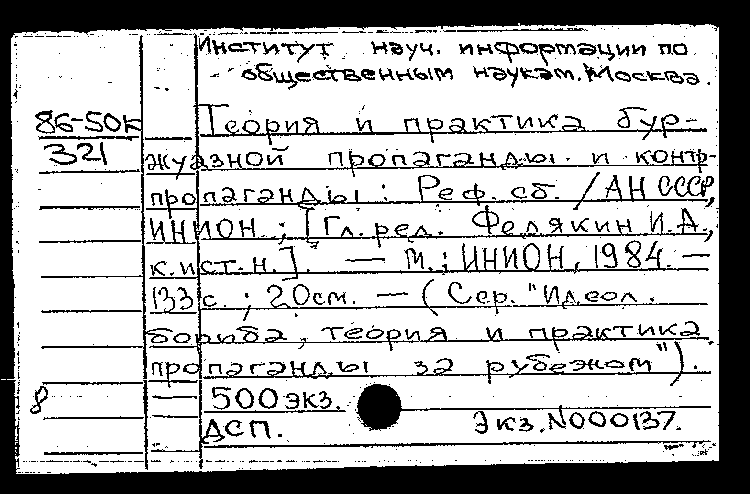 Институт науч. информации по
общественным наукам. Москва.
86-50к
321
Теория и практика бур-
жуазной пропаганды и контр-
пропаганды: Реф. сб. / АН СССР,
ИНИОН; [Гл. ред. Фелякин И.А.,
к.ист.н.]. — М.: ИНИОН, 1984. —
133 с.; 20 см. — (Сер. "Идеол.
борьба, теория и практика
пропаганды за рубежом").
8
500 экз.
ДСП. Экз. N000137.